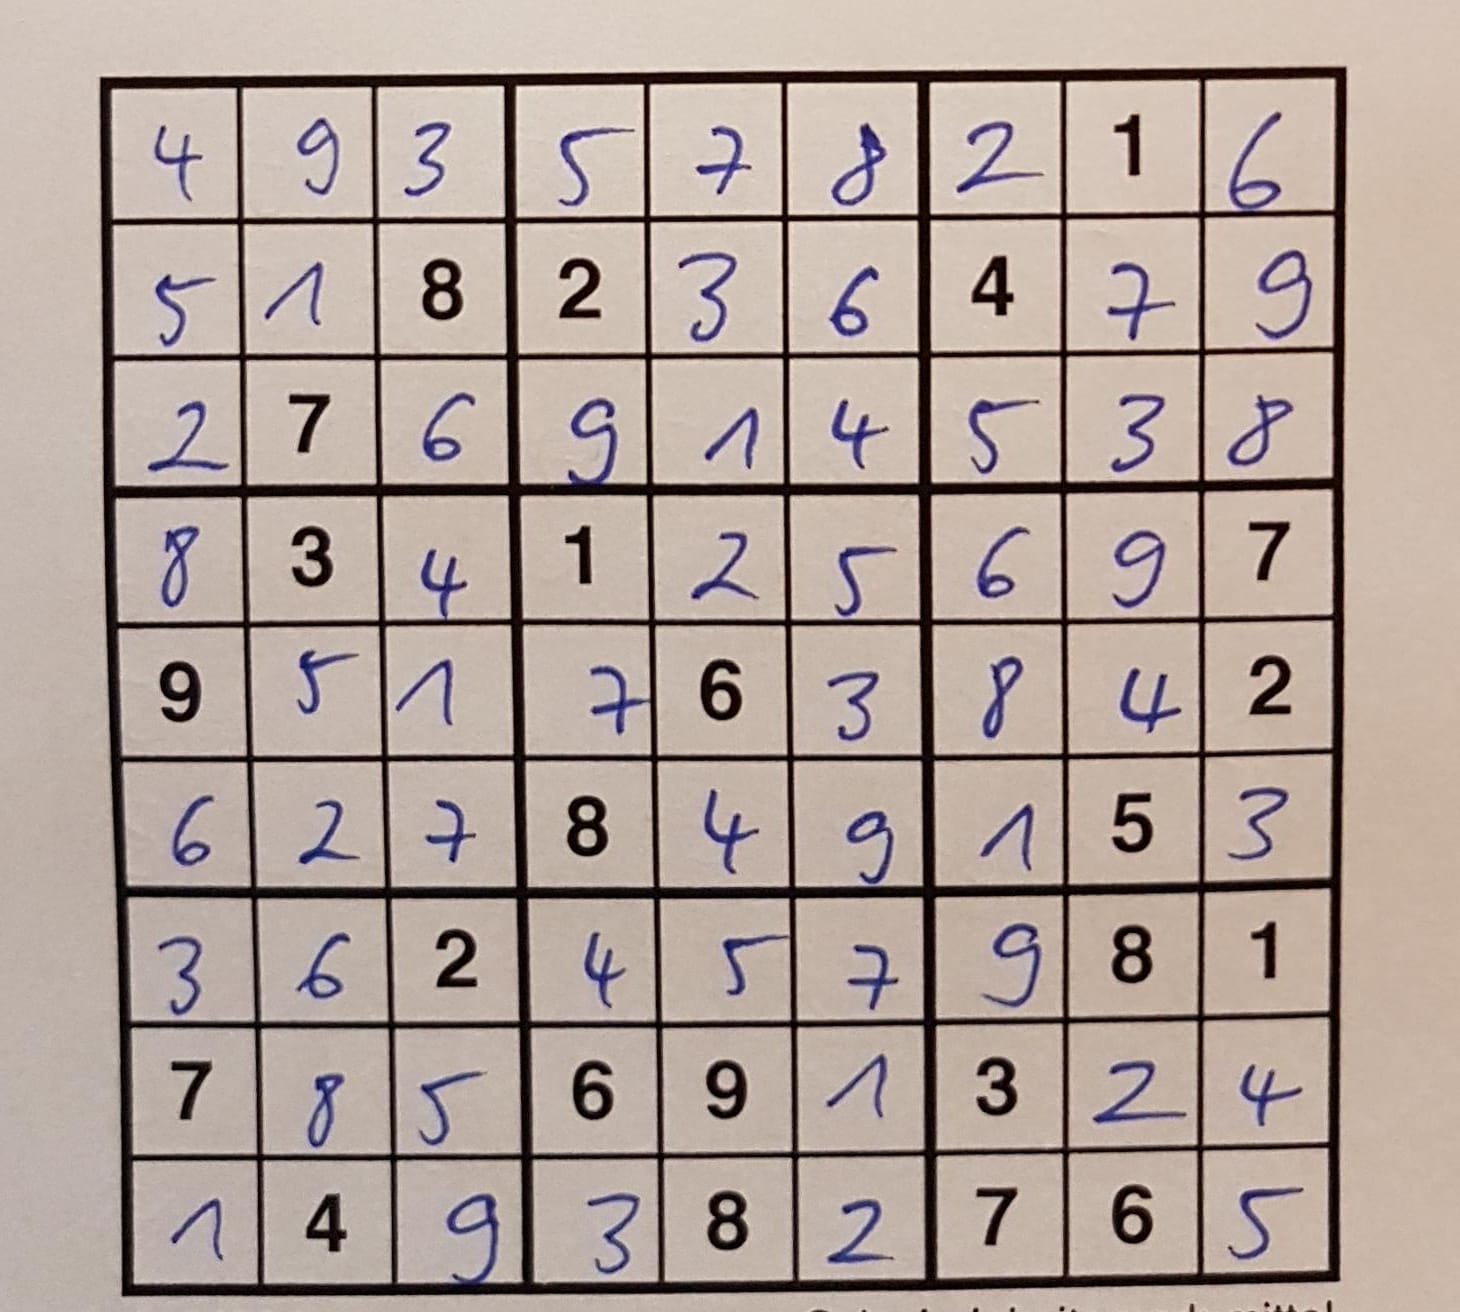 4 9 3 5 7 8 2 1 6
5 1 8 2 3 6 4 7 9
2 7 6 9 1 4 5 3 8
8 3 4 1 2 5 6 9 7
9 5 1 7 6 3 8 4 2
6 2 7 8 4 9 1 5 3
3 6 2 4 5 7 9 8 1
7 8 5 6 9 1 3 2 4
1 4 9 3 8 2 7 6 5